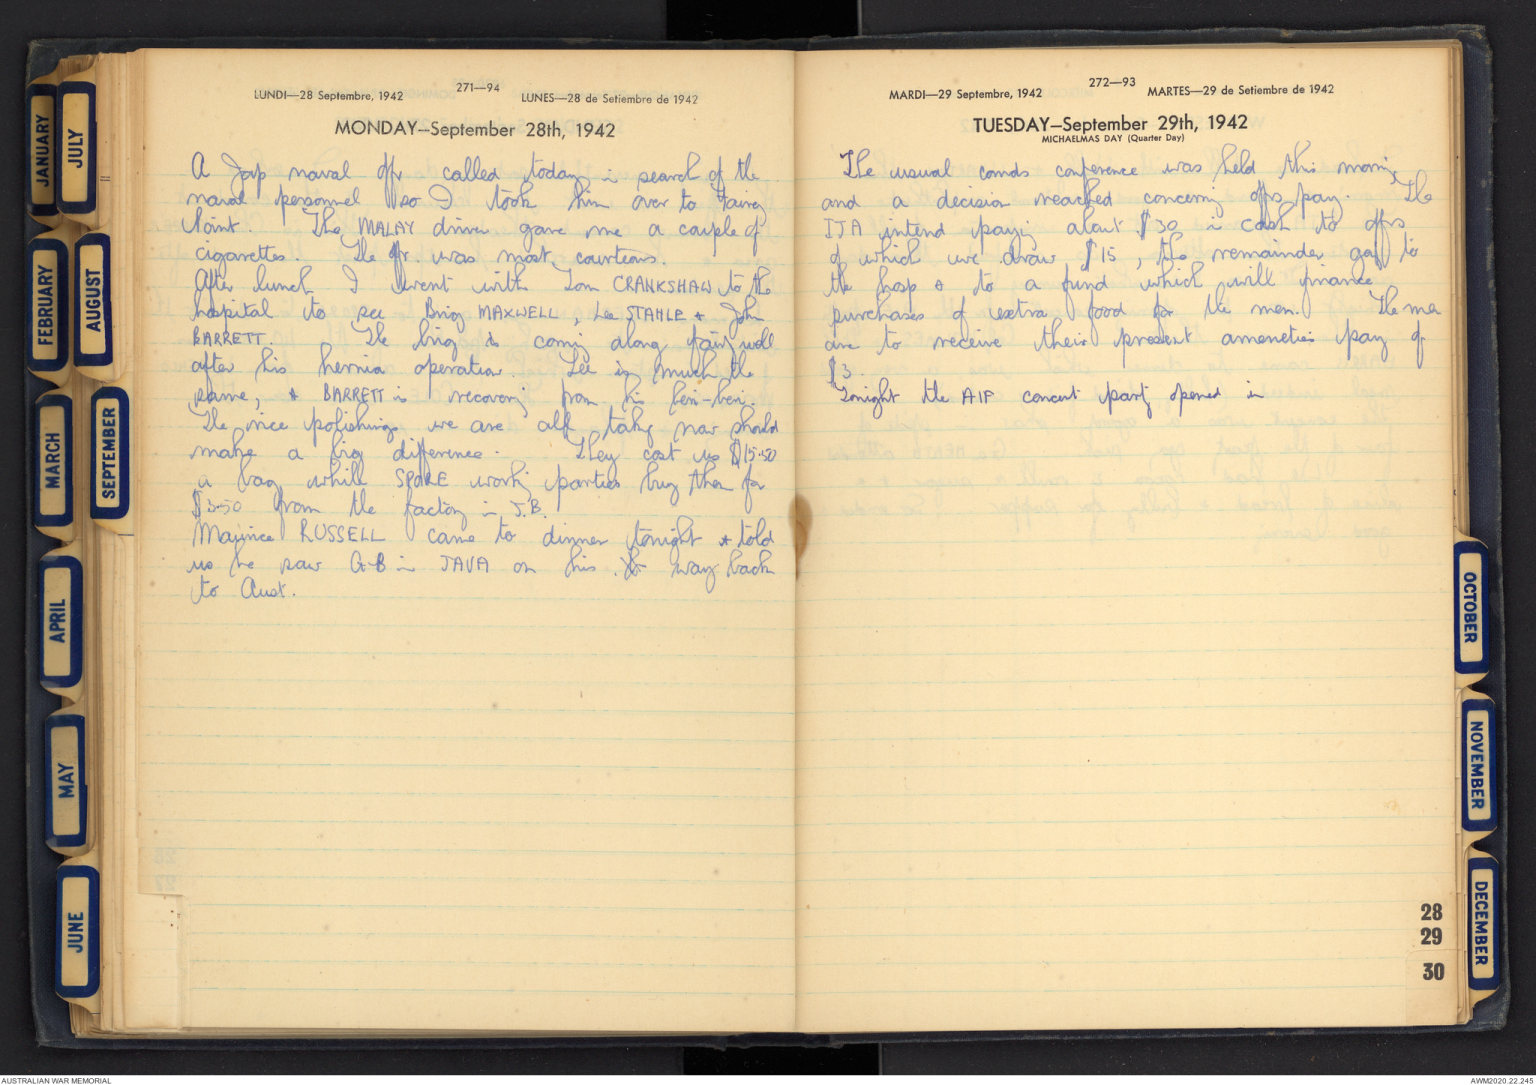 LUNDI—28 Septembre, 1942
271—94
LUNES—28 de Setiembre de 1942
MONDAY—September 28th, 1942
A Jap naval offr. called today in search of the
naval personnel so I took him over to Tairey
Point. The MALAY driver gave me a couple of
cigarettes. The offr. was most courteous.
After lunch I went with Tom CRANKSHAW to the
hospital to see Brig MAXWELL, Lee STAHLE &amp; John
BARRETT. The brig is coming along fairly well
after his hernia operation. Lee is much the
same, &amp; BARRETT is recovering from his beri-beri.
The rice polishings we are all taking now should
make a big difference. They cost us $15.50
a bag while SPORE working parties buy them for
$3.50 from the factory in J.B.
Maurice RUSSELL came to dinner tonight &amp; told
us he saw G-B in JAVA on his way back
to Aust.
MARDI—29 Septembre, 1942
272—93
MARTES—29 de Setiembre de 1942
TUESDAY—September 29th, 1942
MICHAELMAS DAY (Quarter Day)
The usual comds conference was held this morning
and a decision reached concerning offrs pay. The
IJA intend paying about $30 in cash to offrs
of which we draw $15, the remainder goes to
the hosp &amp; to a fund which will finance
purchases of extra food for the men. The men
are to receive their present ameneties pay of
$3.
Tonight the AIF concert party opened in
JANUARY
JULY
FEBRUARY
AUGUST
MARCH
SEPTEMBER
APRIL
MAY
JUNE
OCTOBER
NOVEMBER
DECEMBER
28
29
30
AUSTRALIAN WAR MEMORIAL
AWM2020.22.245